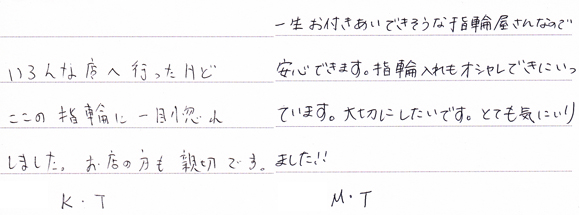 いろんな店へ行ったけど
ここの指輪に一目惚れ
しました。お店の方も親切です。
K・T
一生お付きあいできそうな指輪屋さんなので
安心できます。指輪入れもオシャレできにいっ
ています。大切にしたいです。とても気にいり
ました!!
M・T